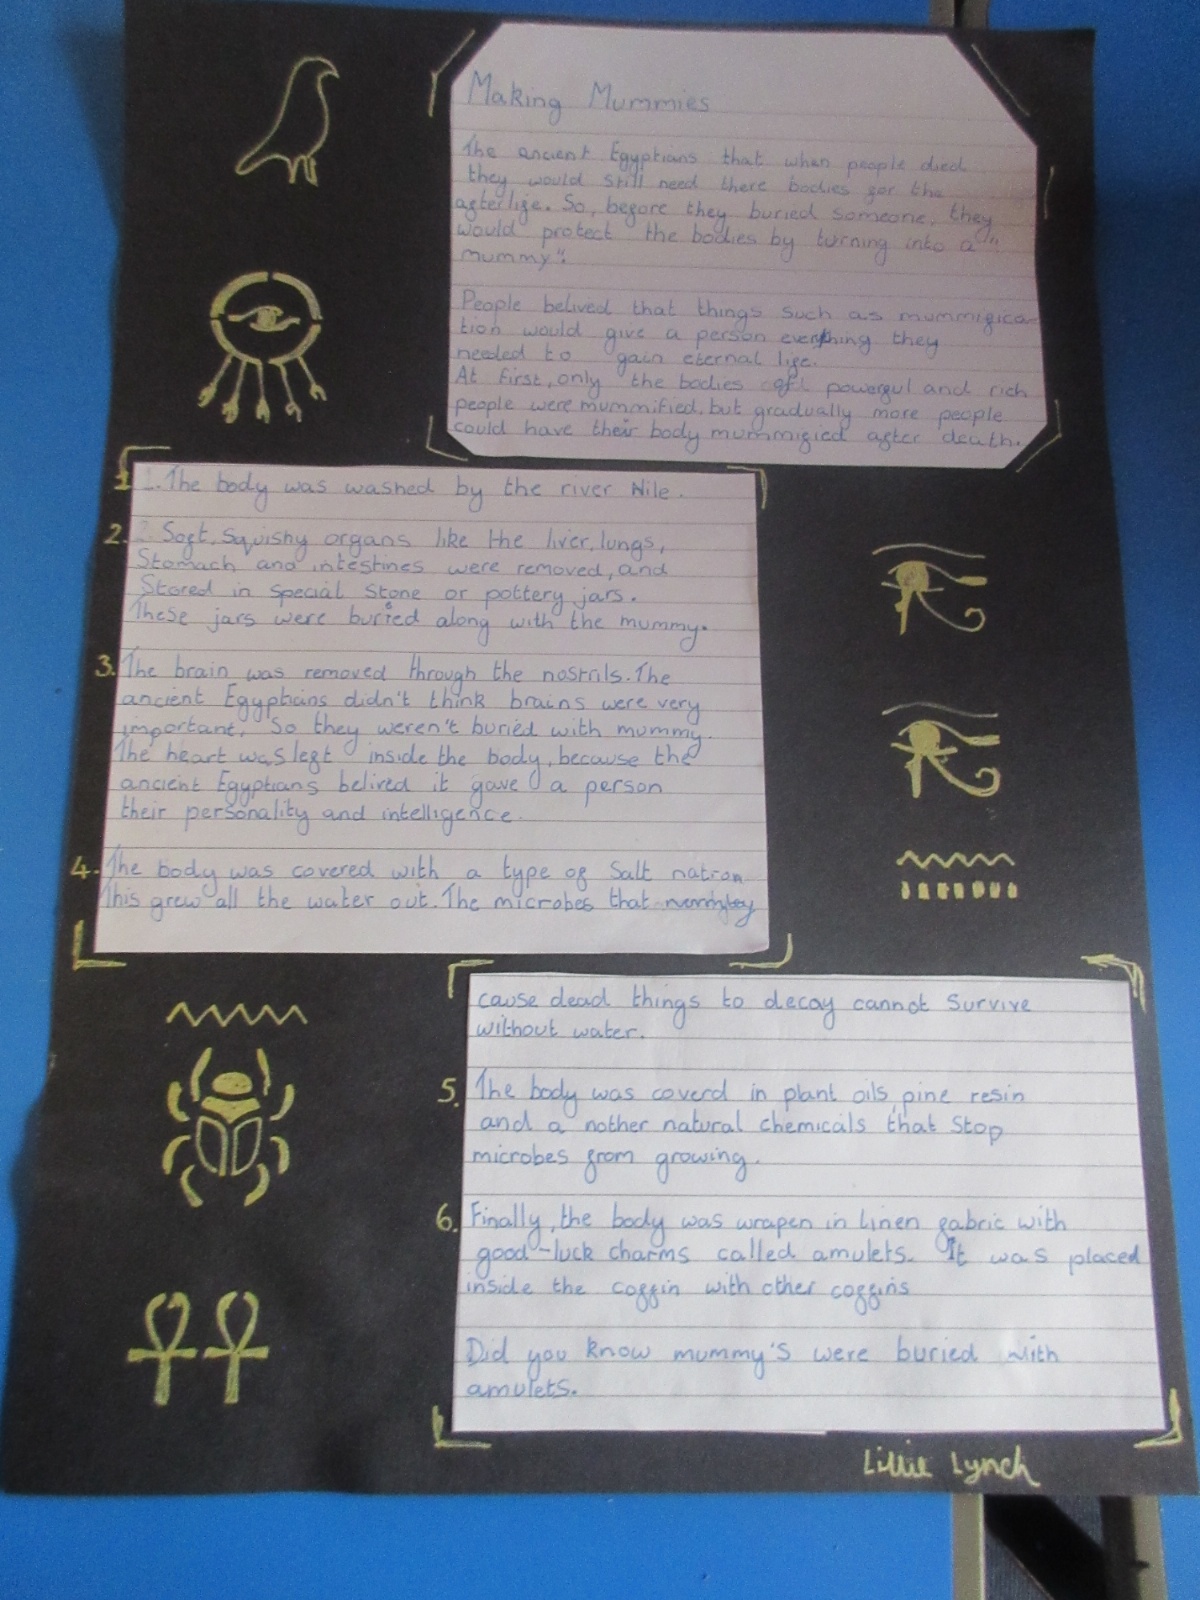 Making Mummies
The ancient Egyptians that when people died
they would still need there bodies for the
afterlife. So, before they buried someone, they
would protect the bodies by turning into a "
mummy".
People belived that things such as mummifica-
tion would give a person everything they
needed to gain eternal life.
At first, only the bodies of powerful and rich
people were mummified, but gradually more people
could have their body mummified after death.
1. The body was washed by the river Nile.
2. Soft, squishy organs like the liver, lungs,
Stomach and intestines were removed, and
Stored in special stone or pottery jars.
These jars were buried along with the mummy.
3. The brain was removed through the nostrils. The
ancient Egyptians didn't think brains were very
important, So they weren't buried with mummy.
The heart was left inside the body, because the
ancient Egyptians belived it gave a person
their personality and intelligence.
4. The body was covered with a type of Salt natron
This grew all the water out. The microbes that
cause dead things to decay cannot Survive
without water.
5. The body was coverd in plant oils, pine resin
and a nother natural chemicals that stop
microbes from growing.
6. Finally, the body was wrapen in linen fabric with
good-luck charms called amulets. It was placed
inside the coffin with other coffins
Did you know mummy's were buried with
amulets.
Lillie Lynch